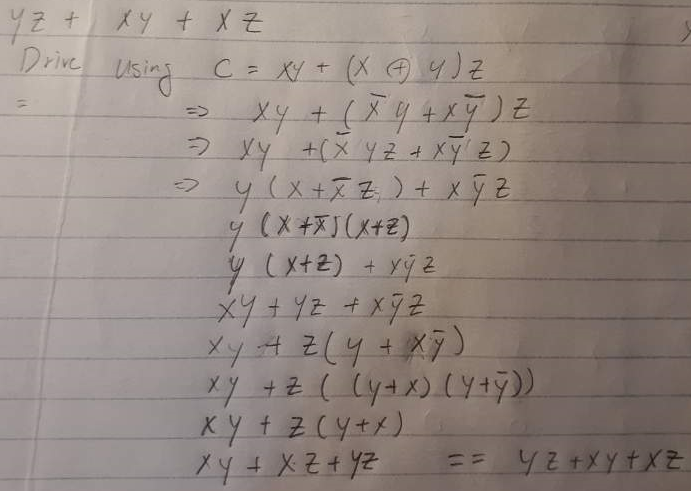 yz + xy + xz
Drive using C = xy + (x ⊕ y) z
= ⇒ xy + (x̄ y + xȳ) z
⇒ xy + (x̄ yz + xȳ z)
⇒ y (x + x̄ z) + xȳ z
y (x + x̄) (x+z)
y (x+z) + xȳz
xy + yz + xȳz
xy + z (y + xȳ)
xy + z ( (y+x) (y+ȳ))
xy + z (y+x)
xy + x.z + yz == yz + xy + xz